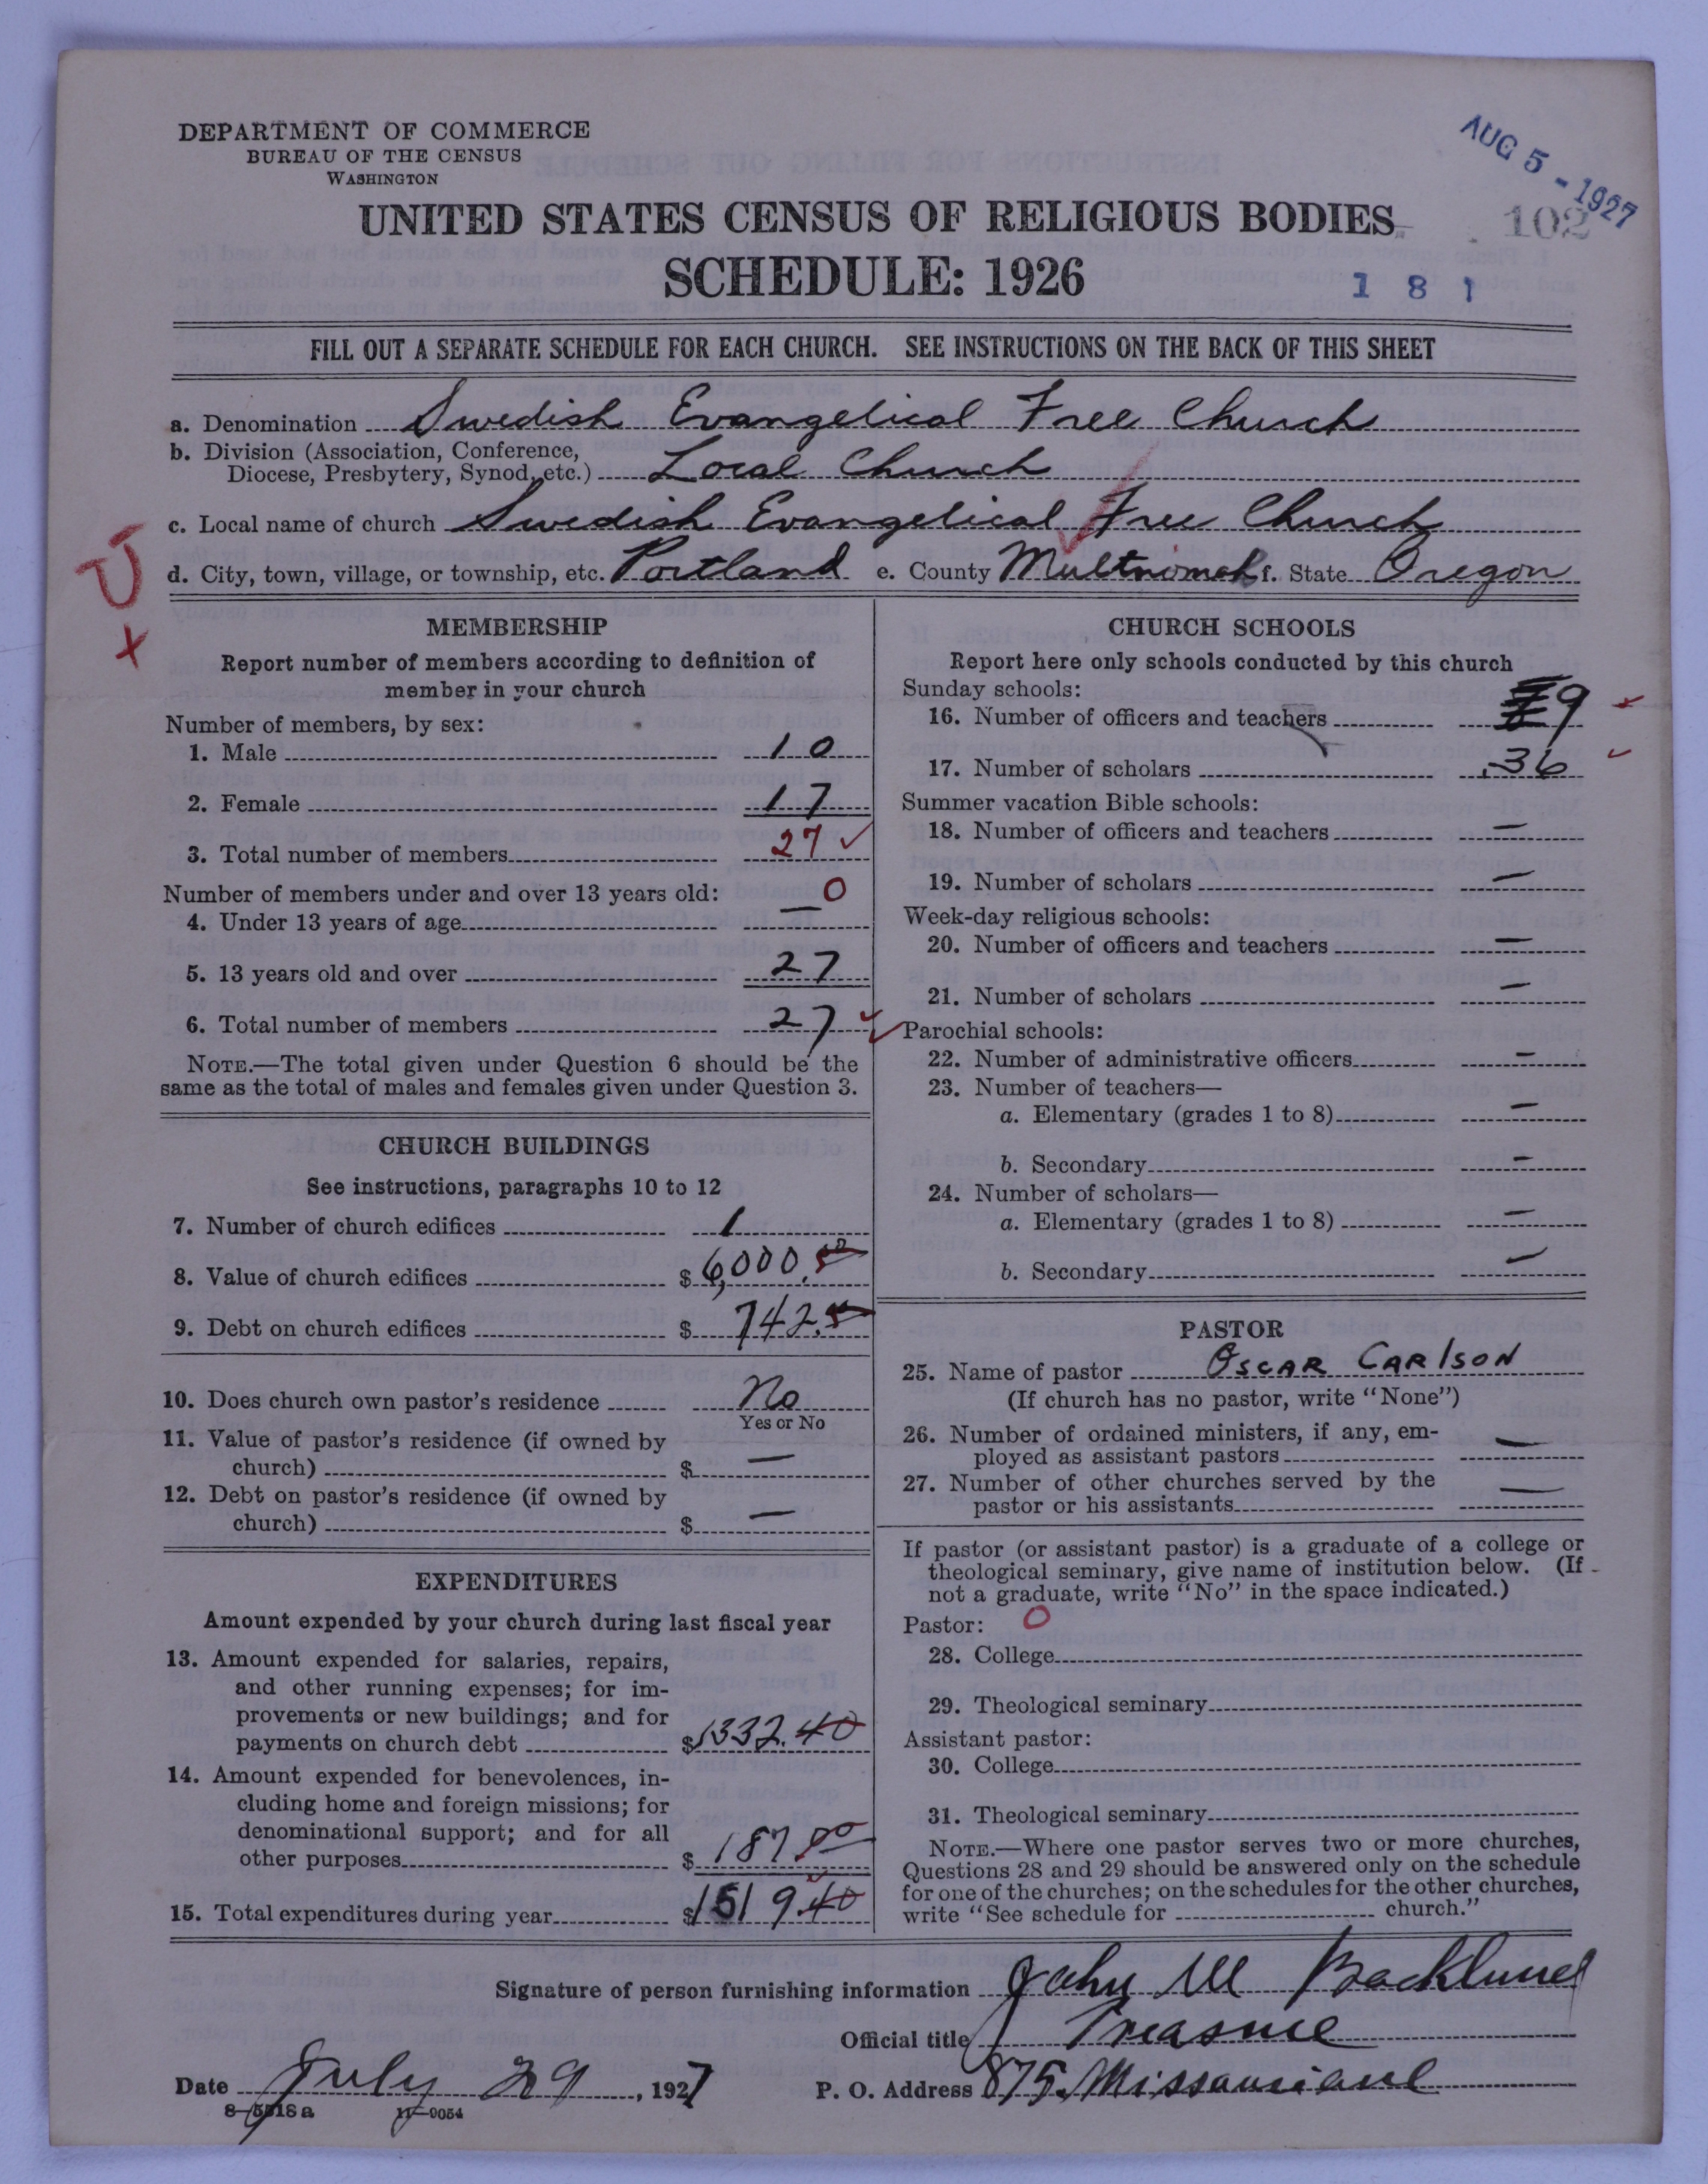 DEPARTMENT OF COMMERCE
BUREAU OF THE CENSUS
WASHINGTON
AUG 5 - 1927
UNITED STATES CENSUS OF RELIGIOUS BODIES
102
SCHEDULE: 1926
181
FILL OUT A SEPARATE SCHEDULE FOR EACH CHURCH. SEE INSTRUCTIONS ON THE BACK OF THIS SHEET
a. Denomination Swedish Evangelical Free Church
b. Division (Association, Conference,
Diocese, Presbytery, Synod, etc.) Local Church
c. Local name of church Swedish Evangelical Free Church
d. City, town, village, or township, etc. Portland e. County Multnomah f. State Oregon
U
x
MEMBERSHIP
Report number of members according to definition of
member in your church
Number of members, by sex:
1. Male 10
2. Female 17
3. Total number of members 27
Number of members under and over 13 years old:
4. Under 13 years of age — 0
5. 13 years old and over 27
6. Total number of members 27
NOTE.—The total given under Question 6 should be the
same as the total of males and females given under Question 3.
CHURCH BUILDINGS
See instructions, paragraphs 10 to 12
7. Number of church edifices 1
8. Value of church edifices $6,000.00
9. Debt on church edifices $742.00
10. Does church own pastor's residence No
Yes or No
11. Value of pastor's residence (if owned by
church) $ —
12. Debt on pastor's residence (if owned by
church) $ —
EXPENDITURES
Amount expended by your church during last fiscal year
13. Amount expended for salaries, repairs,
and other running expenses; for im-
provements or new buildings; and for
payments on church debt $1332.40
14. Amount expended for benevolences, in-
cluding home and foreign missions; for
denominational support; and for all
other purposes $187.00
15. Total expenditures during year $1519.40
CHURCH SCHOOLS
Report here only schools conducted by this church
Sunday schools:
16. Number of officers and teachers 9
17. Number of scholars 36
Summer vacation Bible schools:
18. Number of officers and teachers —
19. Number of scholars —
Week-day religious schools:
20. Number of officers and teachers —
21. Number of scholars —
Parochial schools:
22. Number of administrative officers —
23. Number of teachers—
a. Elementary (grades 1 to 8) —
b. Secondary —
24. Number of scholars—
a. Elementary (grades 1 to 8) —
b. Secondary —
PASTOR
25. Name of pastor OSCAR CARLSON
(If church has no pastor, write "None")
26. Number of ordained ministers, if any, em-
ployed as assistant pastors —
27. Number of other churches served by the
pastor or his assistants —
If pastor (or assistant pastor) is a graduate of a college or
theological seminary, give name of institution below. (If
not a graduate, write "No" in the space indicated.)
Pastor: O
28. College
29. Theological seminary
Assistant pastor:
30. College
31. Theological seminary
NOTE.—Where one pastor serves two or more churches,
Questions 28 and 29 should be answered only on the schedule
for one of the churches; on the schedules for the other churches,
write "See schedule for church."
Signature of person furnishing information John M Backlund
Official title Treasure
Date July 29, 1927 P. O. Address 875 Missouri ave
8-5518a 11-9054